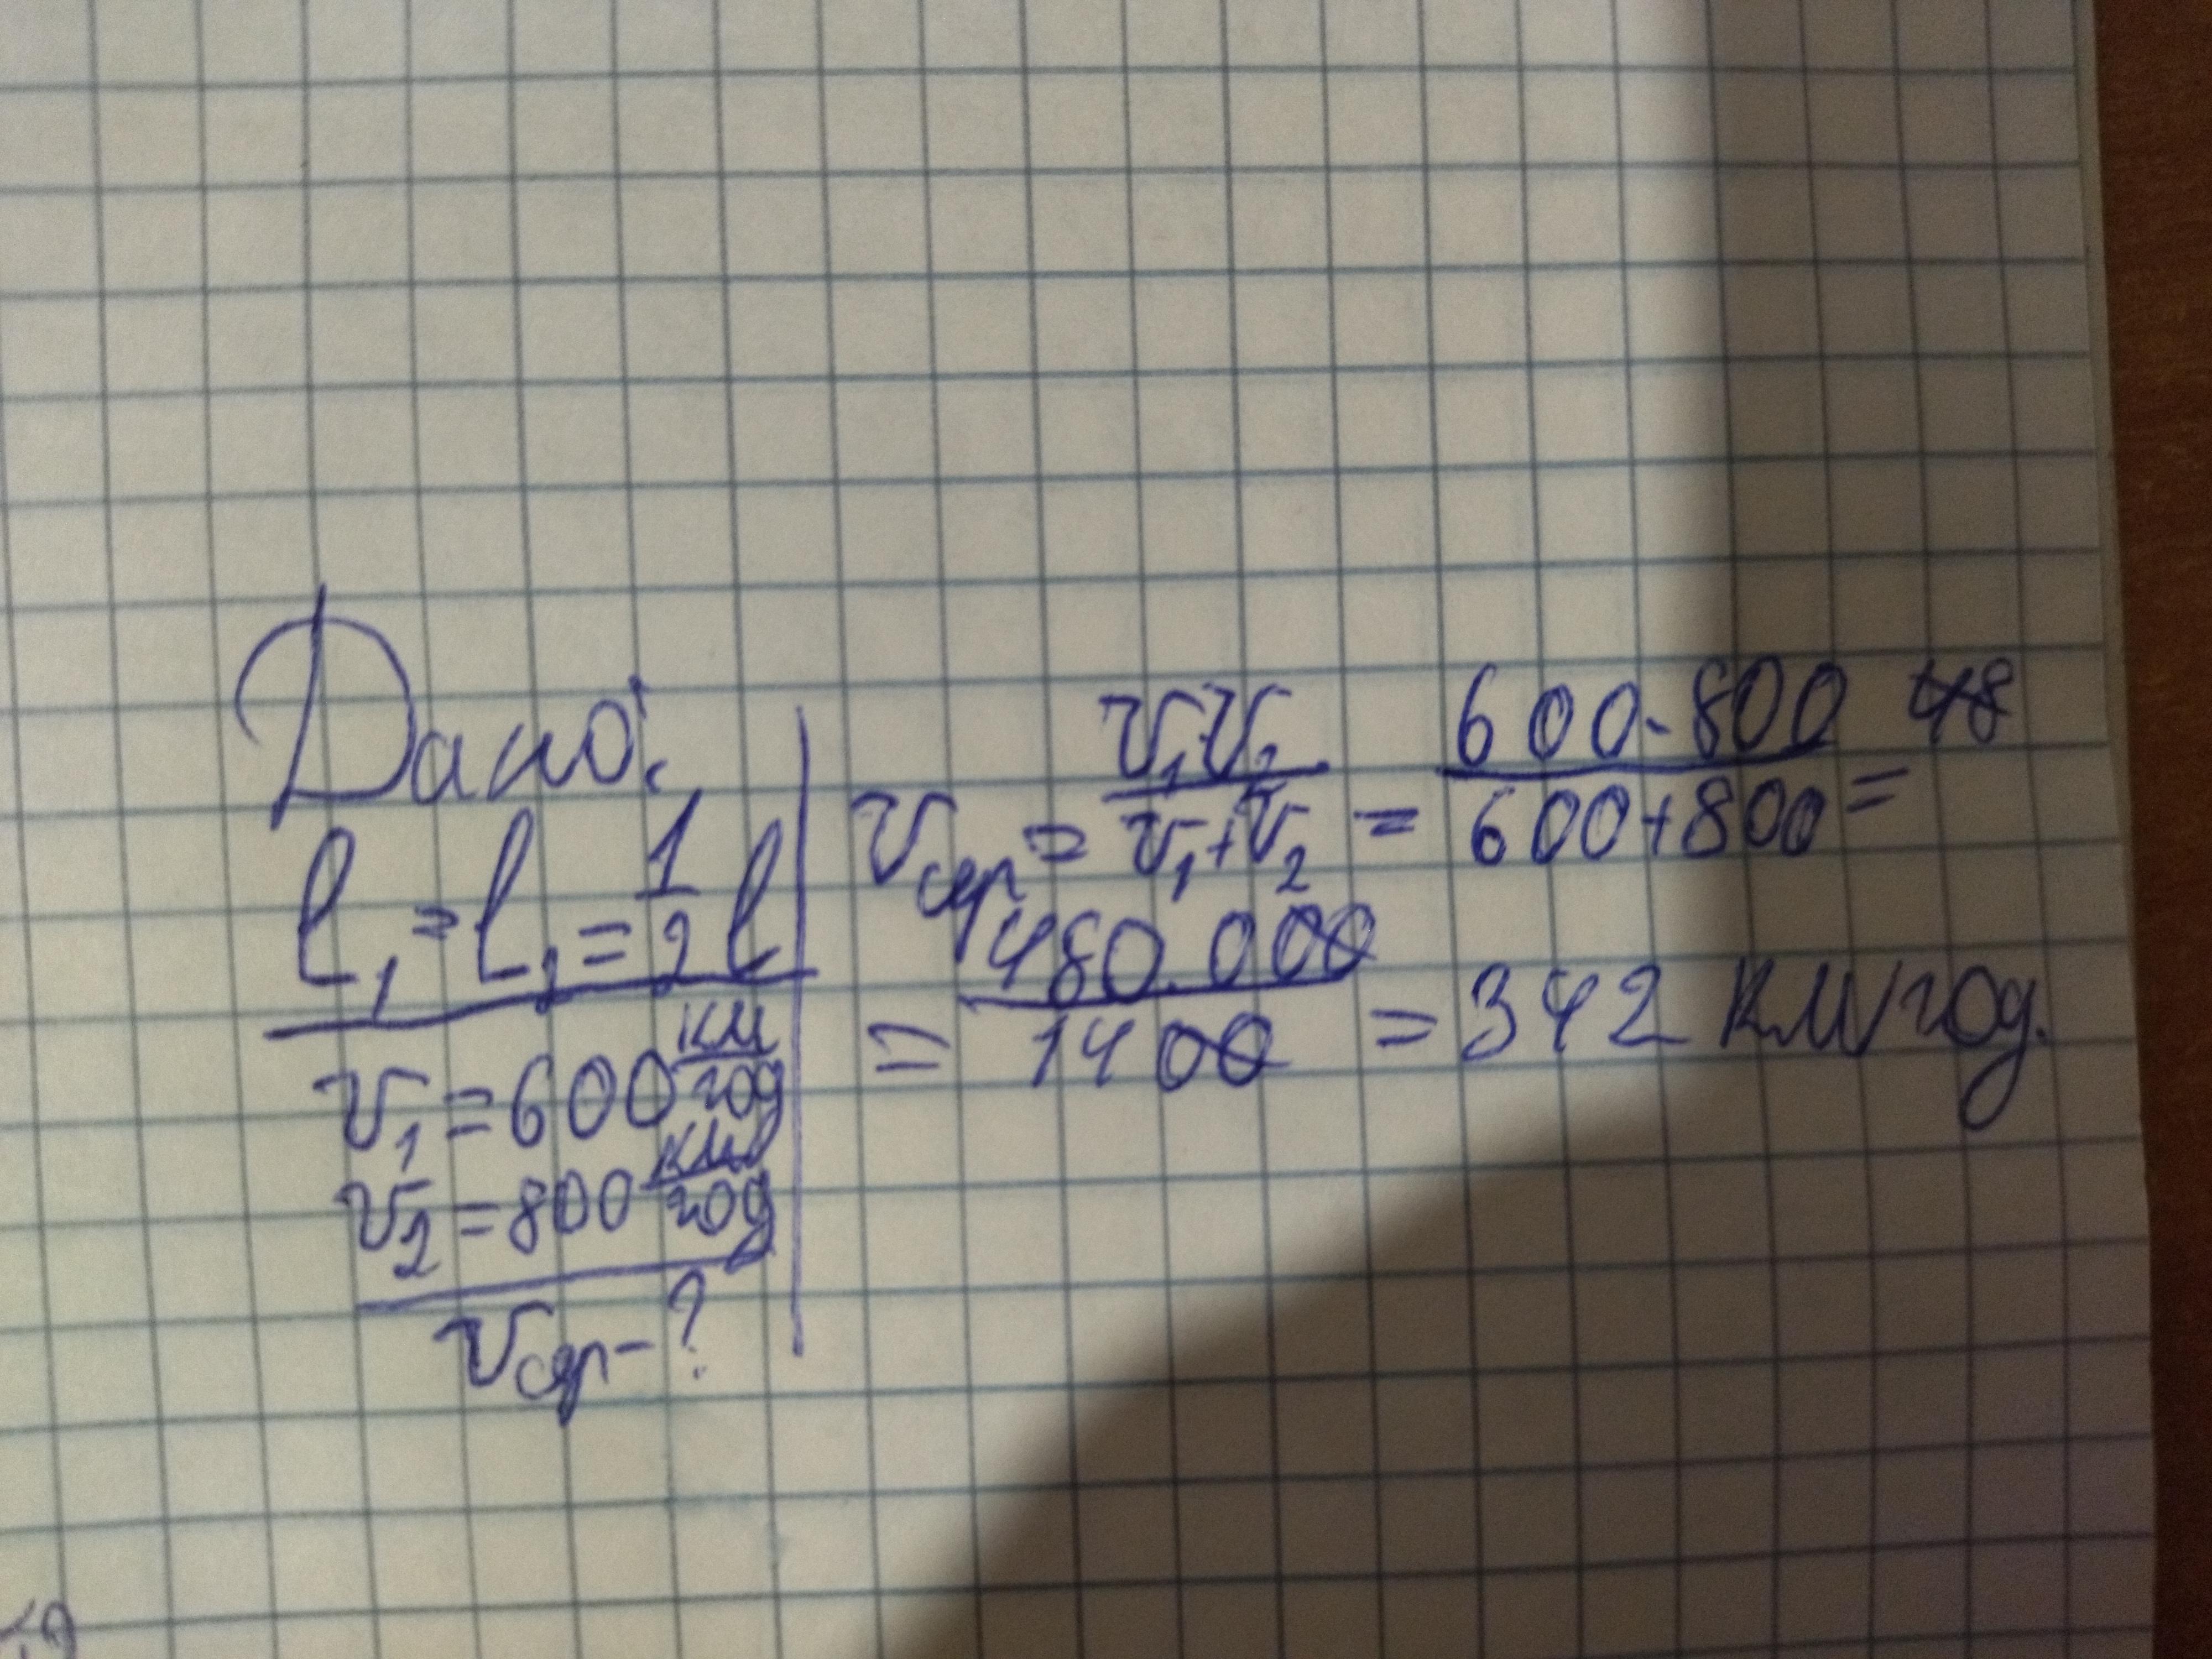 Дано:
l₁ = l₂ = 1/2 l
v₁ = 600 км/год
v₂ = 800 км/год
vсер - ?
vсер = v₁·v₂/v₁+v₂ = 600·800/600+800 =
= 480.000/1400 = 342 км/год.